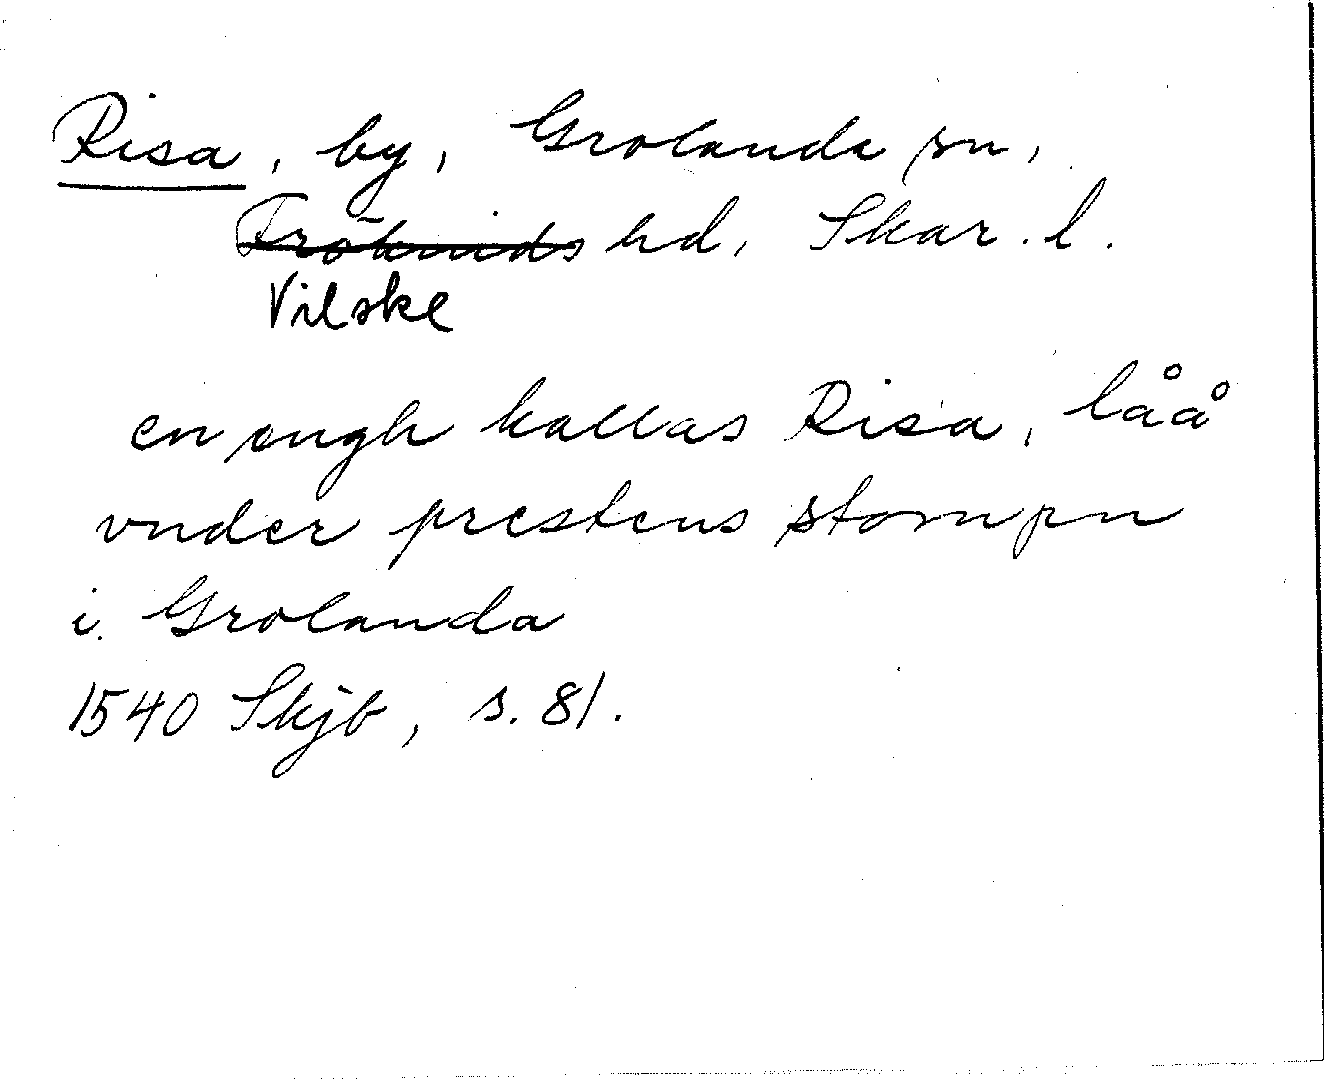 Risa, by, Grolanda sn,
Frökinds hd, Skar. l.
Vilske
en ængh kallas Risa, låå
vnder prestens stompn
i Grolanda
1540 Skjb, s. 81.